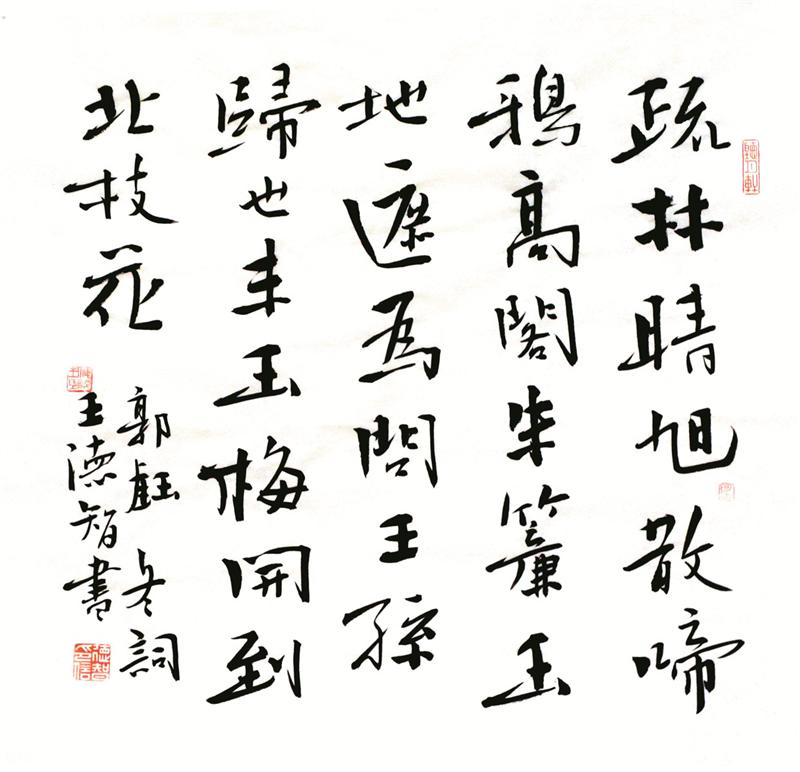 疏林晴旭散啼
鴉高閣朱簾玉
地遮為問王孫
歸也未玉梅開到
北枝花
郭鈺 冬詞
王德智書
德智印信